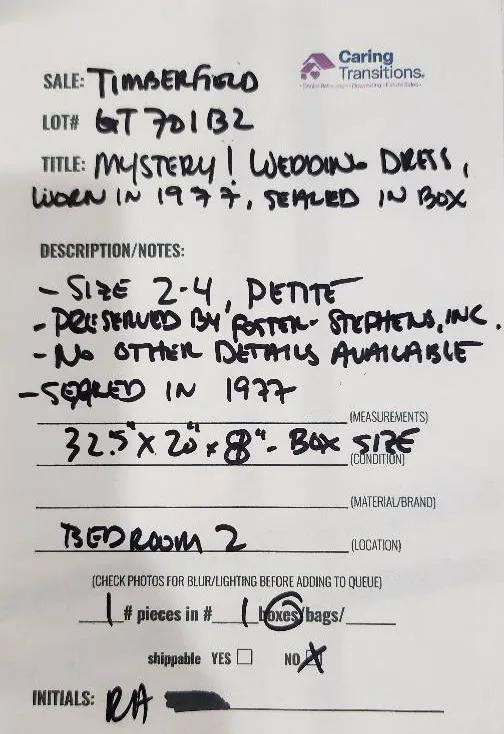 Caring
Transitions.
SALE: TIMBERFIELD
LOT# GT701B2
TITLE: MYSTERY! WEDDING DRESS,
WORN IN 1977, SEALED IN BOX
DESCRIPTION/NOTES:
- SIZE 2-4, PETITE
- PRESERVED BY FOSTER-STEPHENS, INC.
- NO OTHER DETAILS AVAILABLE
- SEALED IN 1977
(MEASUREMENTS)
32.5" X 20" X 8" - BOX SIZE
(CONDITION)
(MATERIAL/BRAND)
BEDROOM 2
(LOCATION)
(CHECK PHOTOS FOR BLUR/LIGHTING BEFORE ADDING TO QUEUE)
1 # pieces in # 1 boxes/bags/
shippable YES NO X
INITIALS: RA